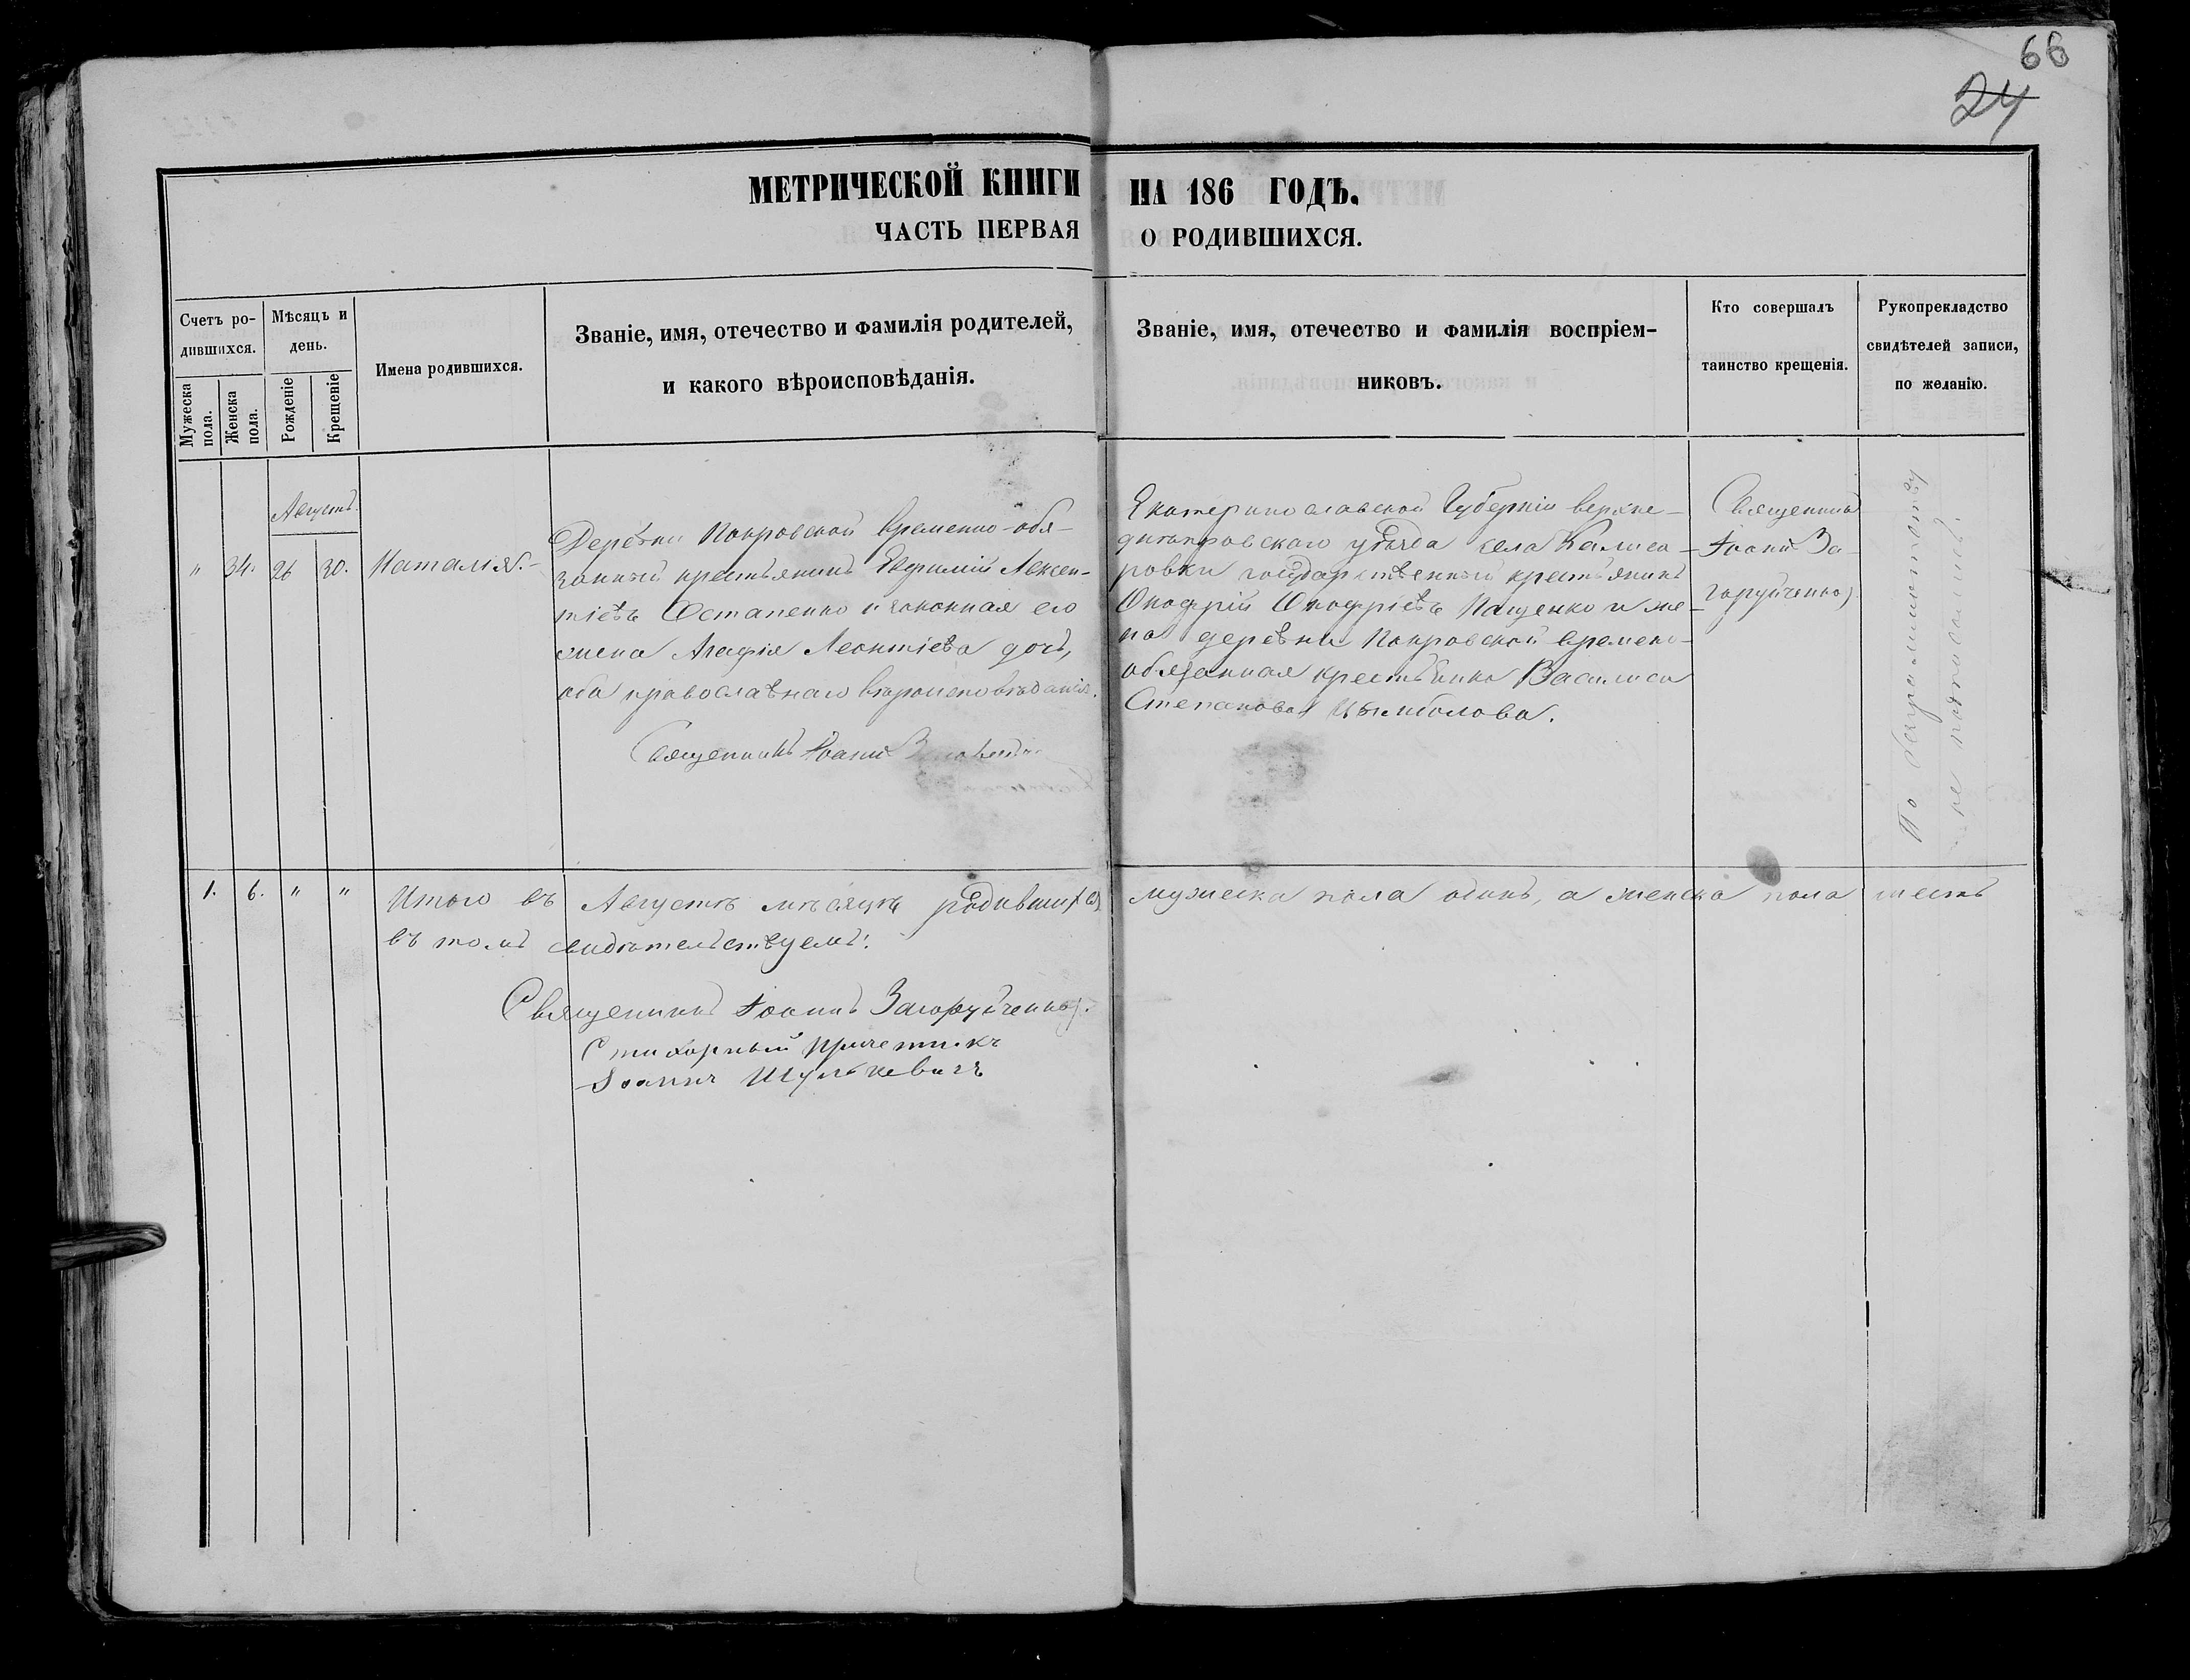 66
24
МЕТРИЧЕСКОЙ КНИГИ НА 186 ГОДЪ.
ЧАСТЬ ПЕРВАЯ О РОДИВШИХСЯ.
Счетъ ро-
дившихся.
Мужеска
пола.
Женска
пола.
Мѣсяцъ и
день.
Рожденіе
Крещеніе
Имена родившихся.
Званіе, имя, отечество и фамилія родителей,
и какого вѣроисповѣданія.
Званіе, имя, отечество и фамилія воспріем-
никовъ.
Кто совершалъ
таинство крещенія.
Рукопрекладство
свидѣтелей записи,
по желанію.
Августъ.
" 34. 26 30. Наталія.
Деревни Покровской временно-обя-
занный крестьянинъ Евфимій Авксен-
тіевъ Остапенко и законная его
жена Агафія Леонтіева дочь,
оба православнаго вѣроисповѣданія.
Священникъ Іоаннъ
Екатеринославской Губерніи верхне-
днѣпровскаго уѣзда села
ровки государственный крестьянинъ
Онофрій Онофріевъ Пащенко и же-
на деревни Покровской времено-
обязанная крестьянка Васлиса
Степанова Цымбалова.
Священникъ
Іоаннъ За-
горуйченко
По безграмотству
не подписались.
1. 6. " " Итого въ Августѣ мѣсяцѣ родившихся мужеска пола одинъ, а женска пола шесть
въ томъ свидѣтельствуемъ:
Священникъ Іоаннъ Загоруйченко.
Стихарный причетникъ
Іоаннъ Шулькевичъ